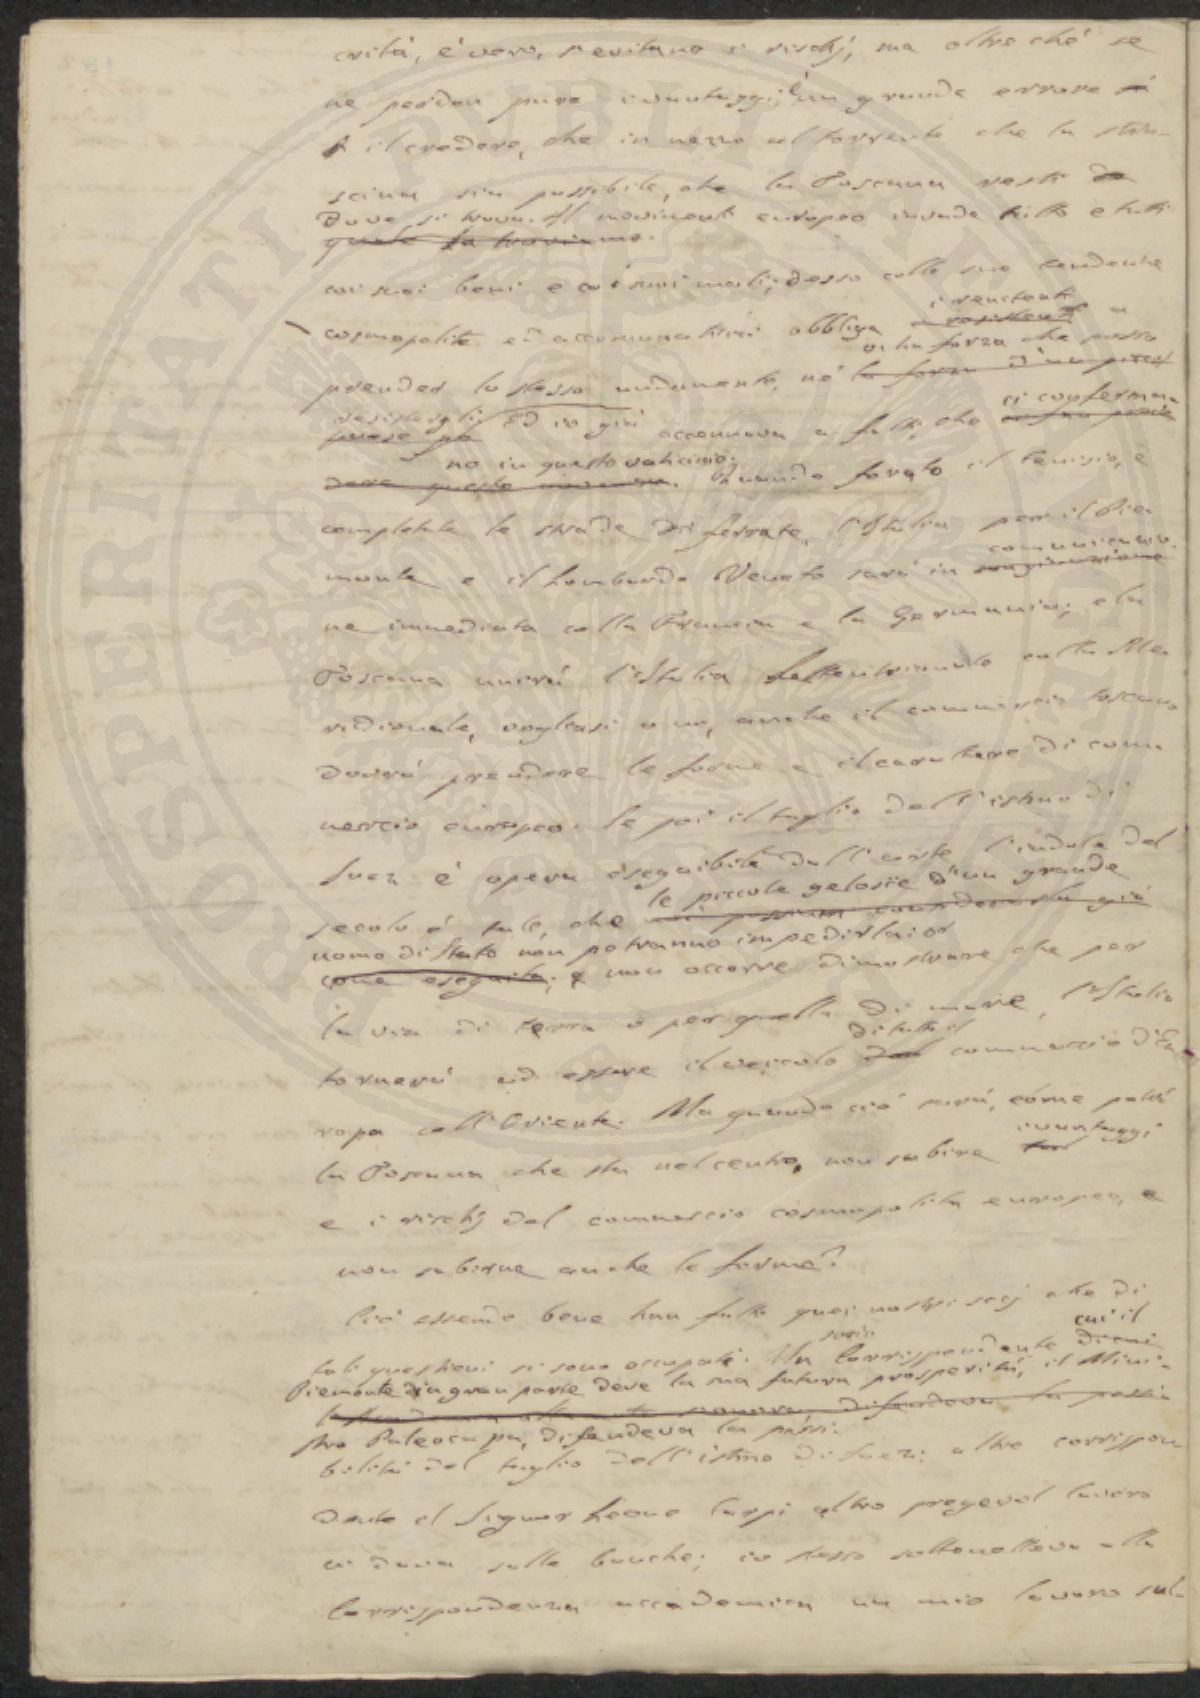 crità, è vero, s'evitano i rischj, ma oltre chè se
ne perdon pure i vantaggi, è un grande errore si
A il credere, che in mezzo al torrente che la stra-
scina sia possibile, che la Toscana resti da
Dove si trova. Il movimento europeo invade tutto e tutti
quale la troviamo.
coi suoi beni e co' suoi mali; desso colle sue tendenze
i renitenti
cosmopolite ed accomunatrici obbliga i resistenti a
vi ha forza che possa
prender lo stesso andamento, nè la forza d'un picciol
resistergli. Ed io già accennava ai fatti, che ci conferma-
paese
no in questo vaticinio;
dare questo Quando forato il Cenisio, e
completate le strade di ferrate, l'Italia per il Pie-
comunicazio-
monte e il Lombardo Veneto sarà in congiunzione
ne immediata colla Francia e la Germania; e la
Toscana unirà l'Italia settentrionale colla Me-
ridionale, vogliasi o no, anche il commercio toscano
dovrà prendere le forme e il carattere di com-
mercio europeo. Se poi il taglio dell'istmo di
Suez è opera eseguibile dall'arte l'indole del
le piccole gelosie d'un grande
secolo è tale, che si possiam considerarla già
uomo di Stato non potranno impedirla; or
come eseguita; e non occorre dimostrare che per
la via di terra o per quella di mare, l'Italia
di tutto il
tornerà ad essere il veicolo del commercio d'Eu-
ropa coll'Oriente. Ma quando ciò sarà, come potrà
i vantaggi
la Toscana che sta nel centro, non subire
e i rischj del commercio cosmopolita europeo, e
non subirne anche le forme?
Ciò essendo bene han fatto quei nostri socj che di
cui il
socio
tali questioni si sono occupati. Un Corrispondente di cui
Piemonte di gran parte deve la sua futura prosperità, il Mini-
difendeva la possi-
stro Paleocapa, difendeva la possi-
bilità del taglio dell'istmo di Suez; altro corrispon-
dente il Signor Leone Carpi altro pregevol lavoro
ci dava sulle banche; io stesso sottometteva alla
Corrispondenza accademica un mio lavoro sul-
PROSPERITATI PUBLICAE AUGENDAE